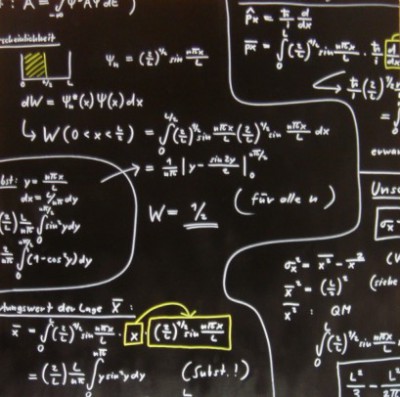 : A = ∫ Ψ* A Ψ dx
-∞
scheinlichkeit
0 L/2 L
Ψₙ = (2/L)^1/2 sin nπx/L
dW = Ψₙ*(x) Ψ(x) dx
↳ W(0 < x < L/2) = ∫₀^L/2 (2/L)^1/2 sin nπx/L (2/L)^1/2 sin nπx/L dx
= 1/nπ | y - sin 2y/2 |₀^nπ/2
bst: y = nπx/L
dx = L/nπ dy
(2/L) L/nπ ∫₀^nπ/2 sin² y dy
∫₀^nπ/2 (1 - cos² y) dy
W = 1/2 (für alle n)
tungswert der Lage x̄ :
x̄ = ∫₀^L (2/L)^1/2 sin nπx/L · x · (2/L)^1/2 sin nπx/L
= (2/L) L/nπ ∫₀^nπ y sin² y dy (Subst.!)
p̂ₓ = ħ/i d/dx
p̄x̄ = ∫₀^L (2/L)^1/2 sin nπx/L · ħ/i d/dx
ħ/i (2/L)^1/2
= ∫₀
erwar
Unsc
σₓ
σₓ² = x̄² - x̄²
x̄² = (L/2)² (siehe
x̄² : QM
∫₀^L (2/L)^1/2 sin nπx/L
L²/3 - L²/2π